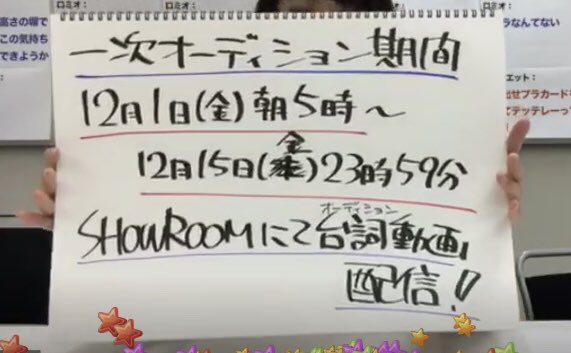 ロミオ：
ロミオ：
高さの塀で
この気持ち
できようか
なんてない
エット：
出せプラカードを
てテッテレーっ
一次オーディション期間
12月1日(金)朝5時〜
金
12月15日( )23時59分
オーディション
SHOWROOMにて台詞動画
配信!!